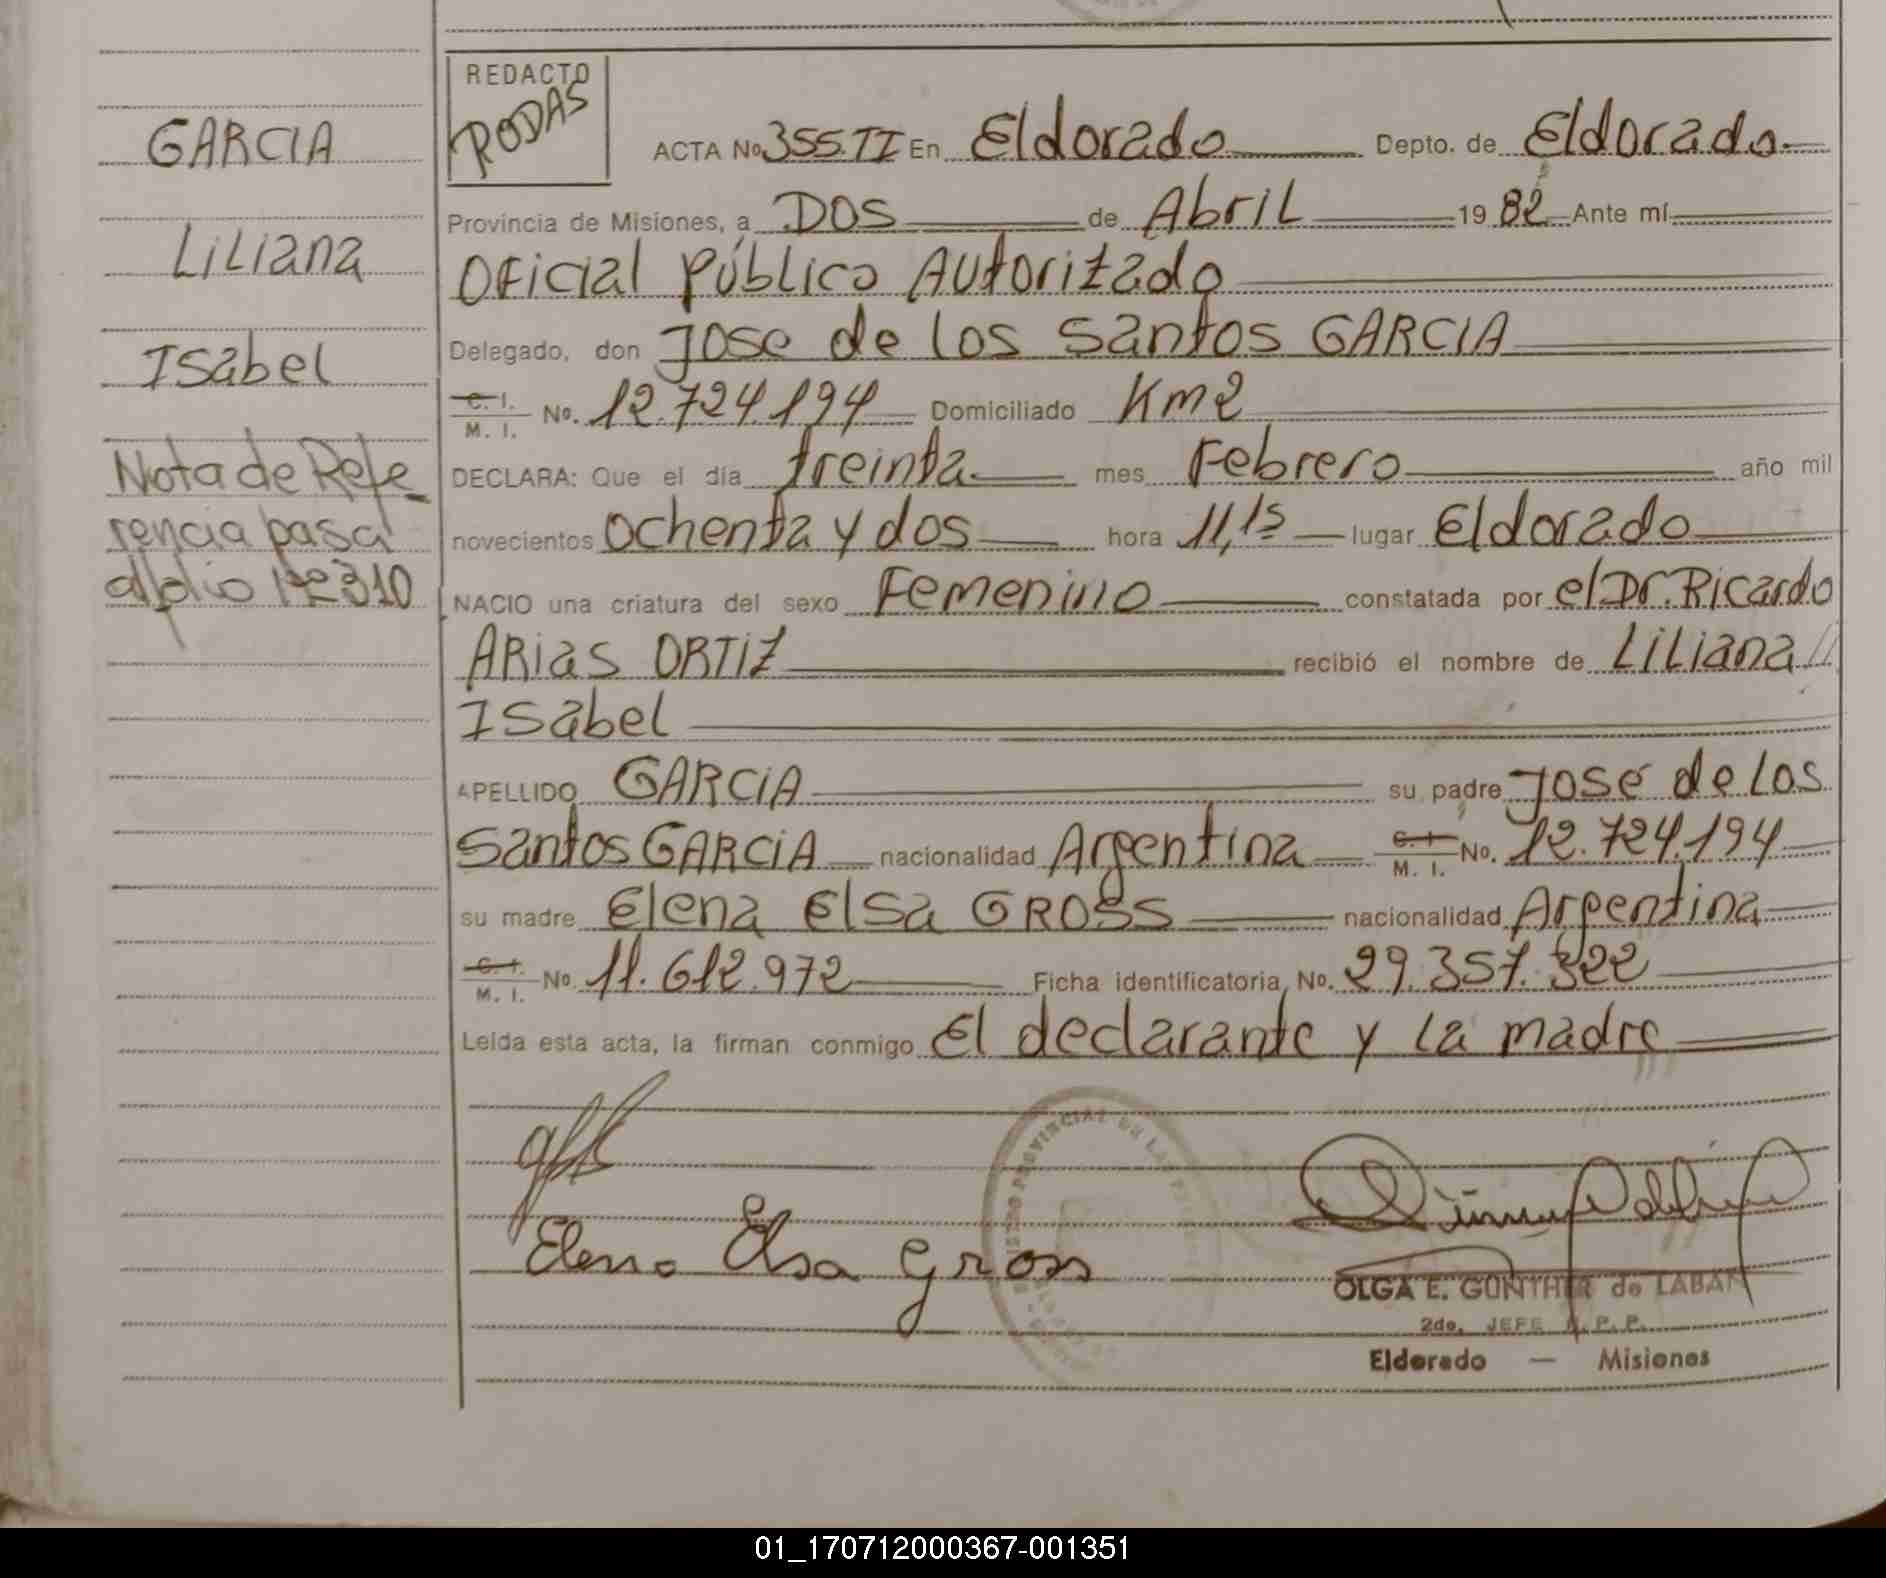 GARCIA
Liliana
Isabel
Nota de Refe
rencia pasa
al folio Nº 310
REDACTO
RODAS
ACTA No 355.TI En Eldorado Depto. de Eldorado
Provincia de Misiones, a DOS de Abril 19 82 Ante mí
Oficial Público Autorizado
Delegado, don Jose de los Santos GARCIA
C. I. M. I. No. 12.724.194 Domiciliado Km2
DECLARA: Que el día treinta mes Febrero año mil
novecientos ochenta y dos hora 11,15 lugar Eldorado
NACIO una criatura del sexo Femenino constatada por el Dr. Ricardo
ARias ORTIZ recibió el nombre de Liliana
Isabel
APELLIDO GARCIA su padre José de los
Santos GARCIA nacionalidad Argentina C. I. M. I. No. 12.724.194
su madre Elena Elsa GROSS nacionalidad Argentina
C. I. M. I. No. 11.612.972 Ficha identificatoria No. 29.357.322
Leída esta acta, la firman conmigo el declarante y la madre
PROVINCIAL DE LAS
Elena Elsa Gross
OLGA E. GUNTHER de LABAN
2do. JEFE R. P. P.
Eldorado — Misiones
01_170712000367-001351